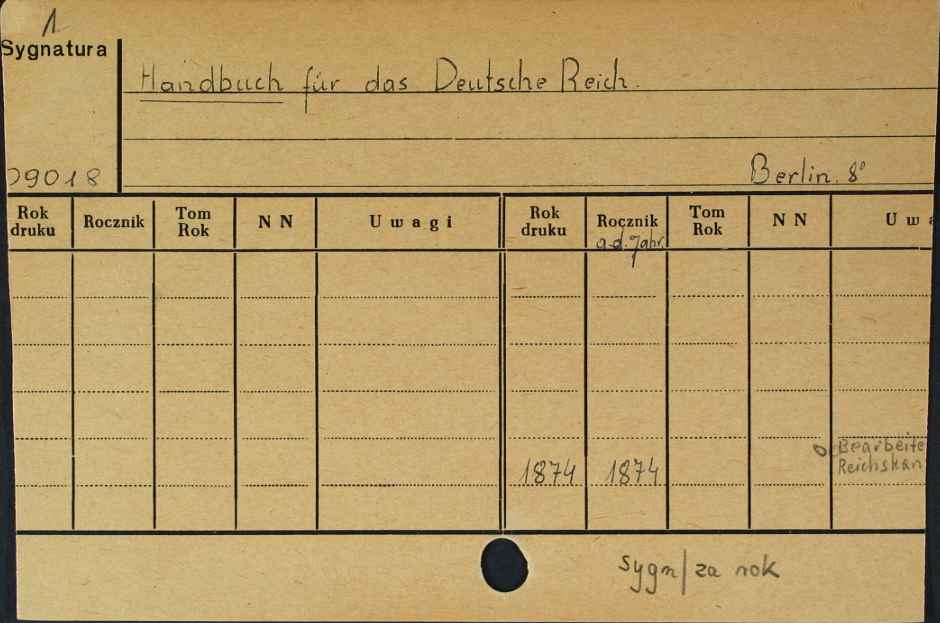 1
Sygnatura
Handbuch für das Deutsche Reich.
09018
Berlin. 8°
Rok druku Rocznik Tom Rok N N Uwagi Rok druku Rocznik Tom Rok N N Uwa
a.d. Jahr
Bearbeite
1874 1874 Reichskan
sygn/za rok